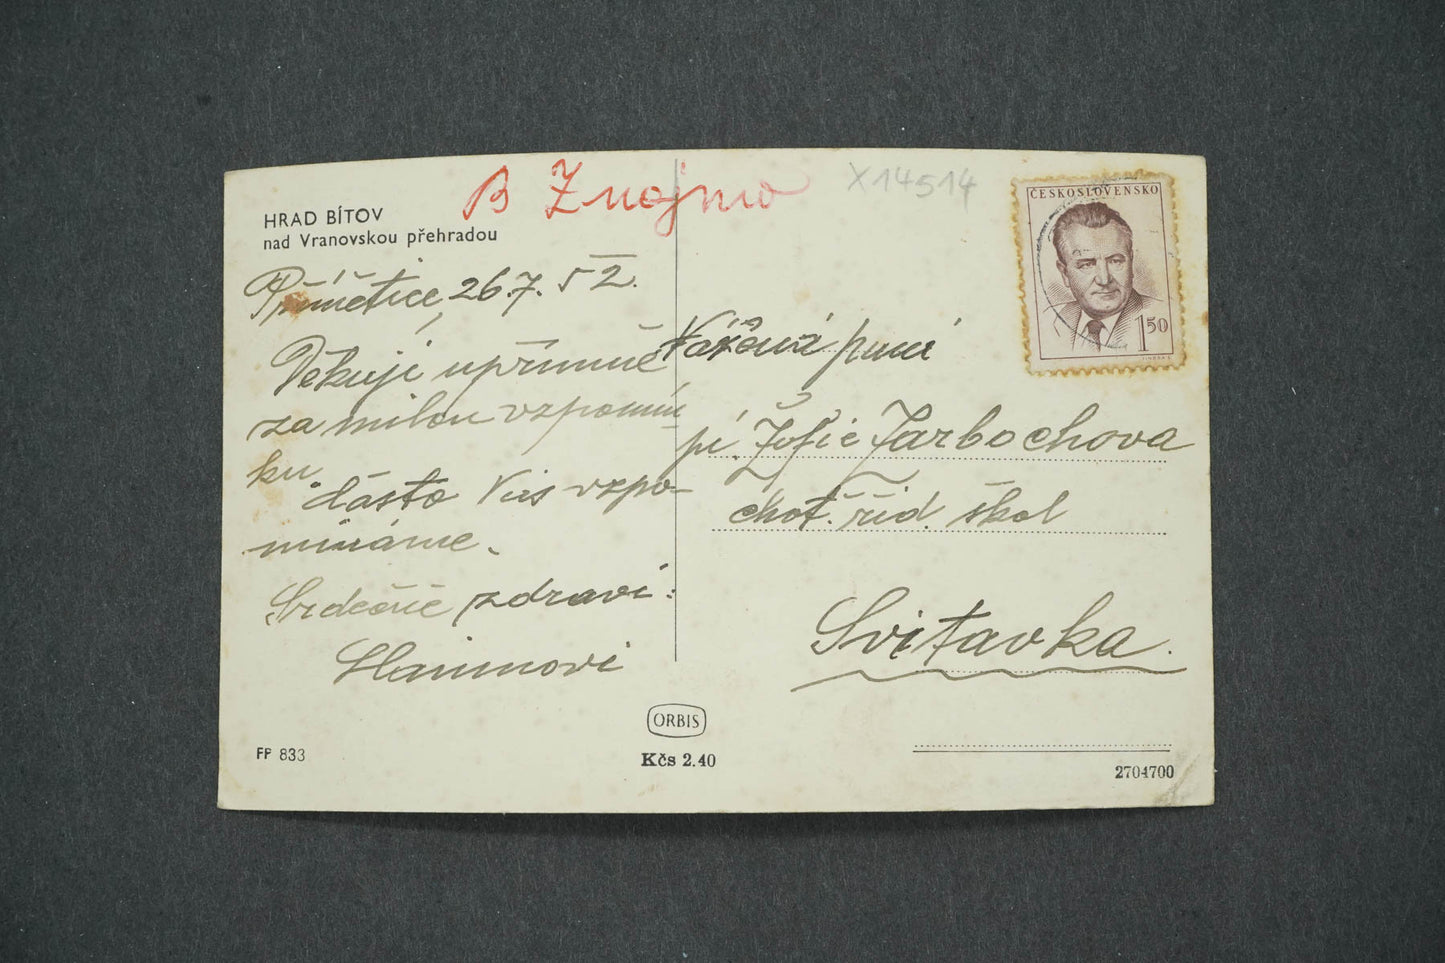 B Znojmo
X14514
HRAD BÍTOV
nad Vranovskou přehradou
ČESKOSLOVENSKO
1 50
Přímětice, 26.7.52.
Děkuji upřímně
za milou vzpomín-
ku. dásto Vás vzpo-
mínáme.
Srdečně zdraví:
Hammovi
Vážená paní
pí. Žofie Jarbochova
chot. říd. škol
Svitavka.
ORBIS
FP 833
Kčs 2.40
2704700